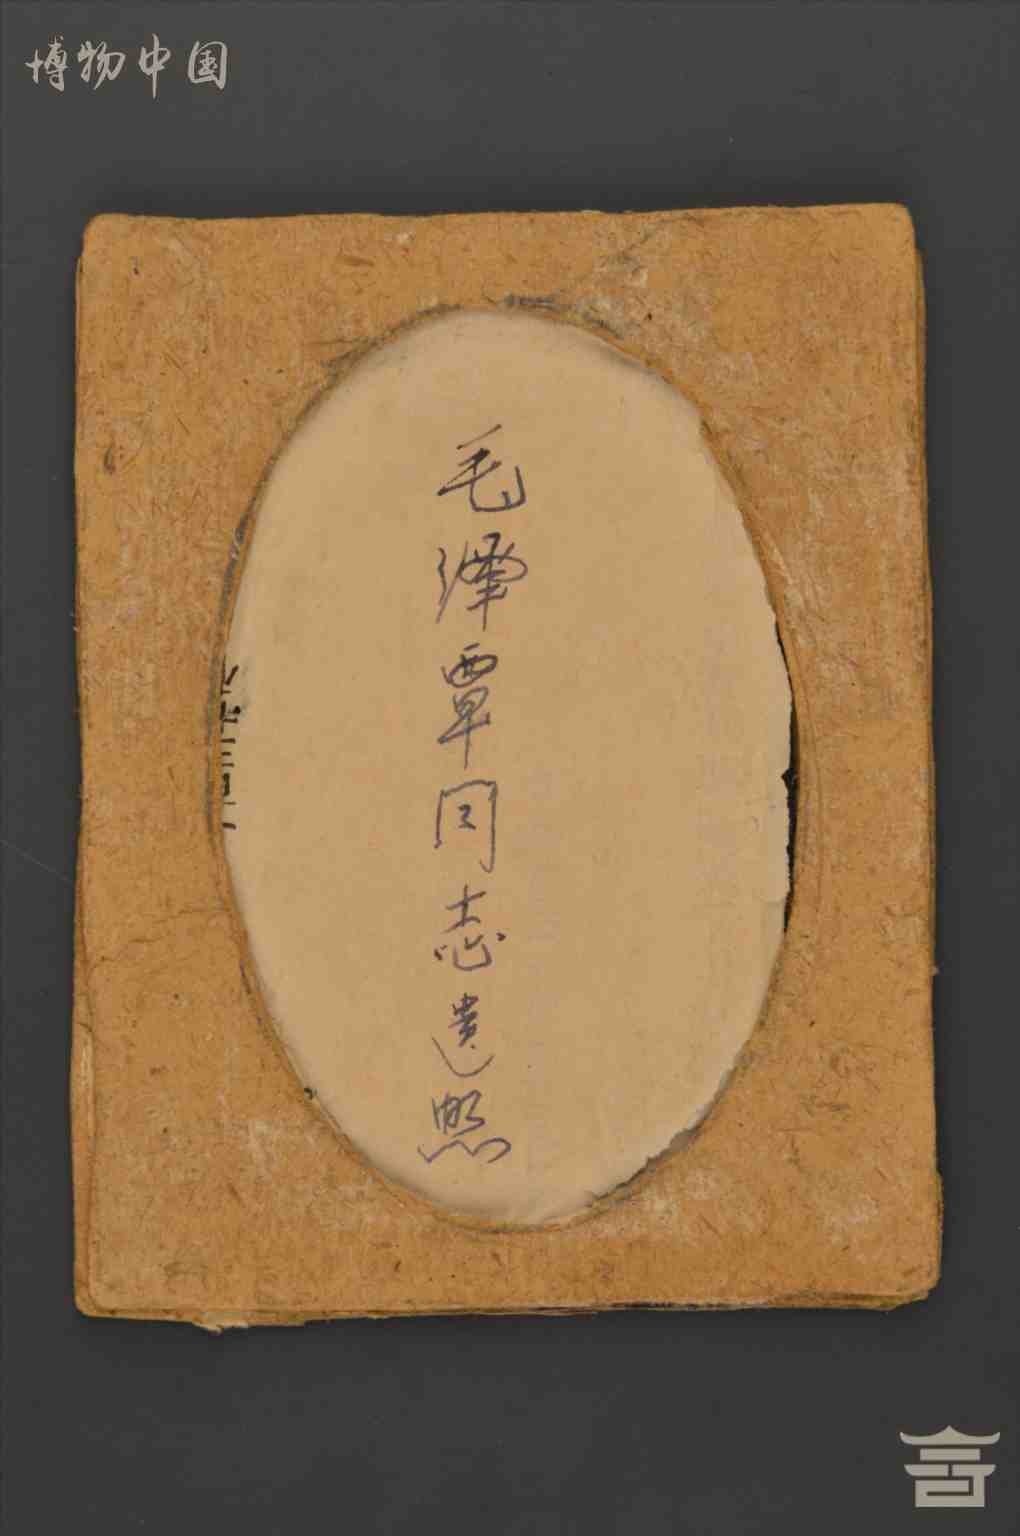 博物中国
毛泽覃同志遗照